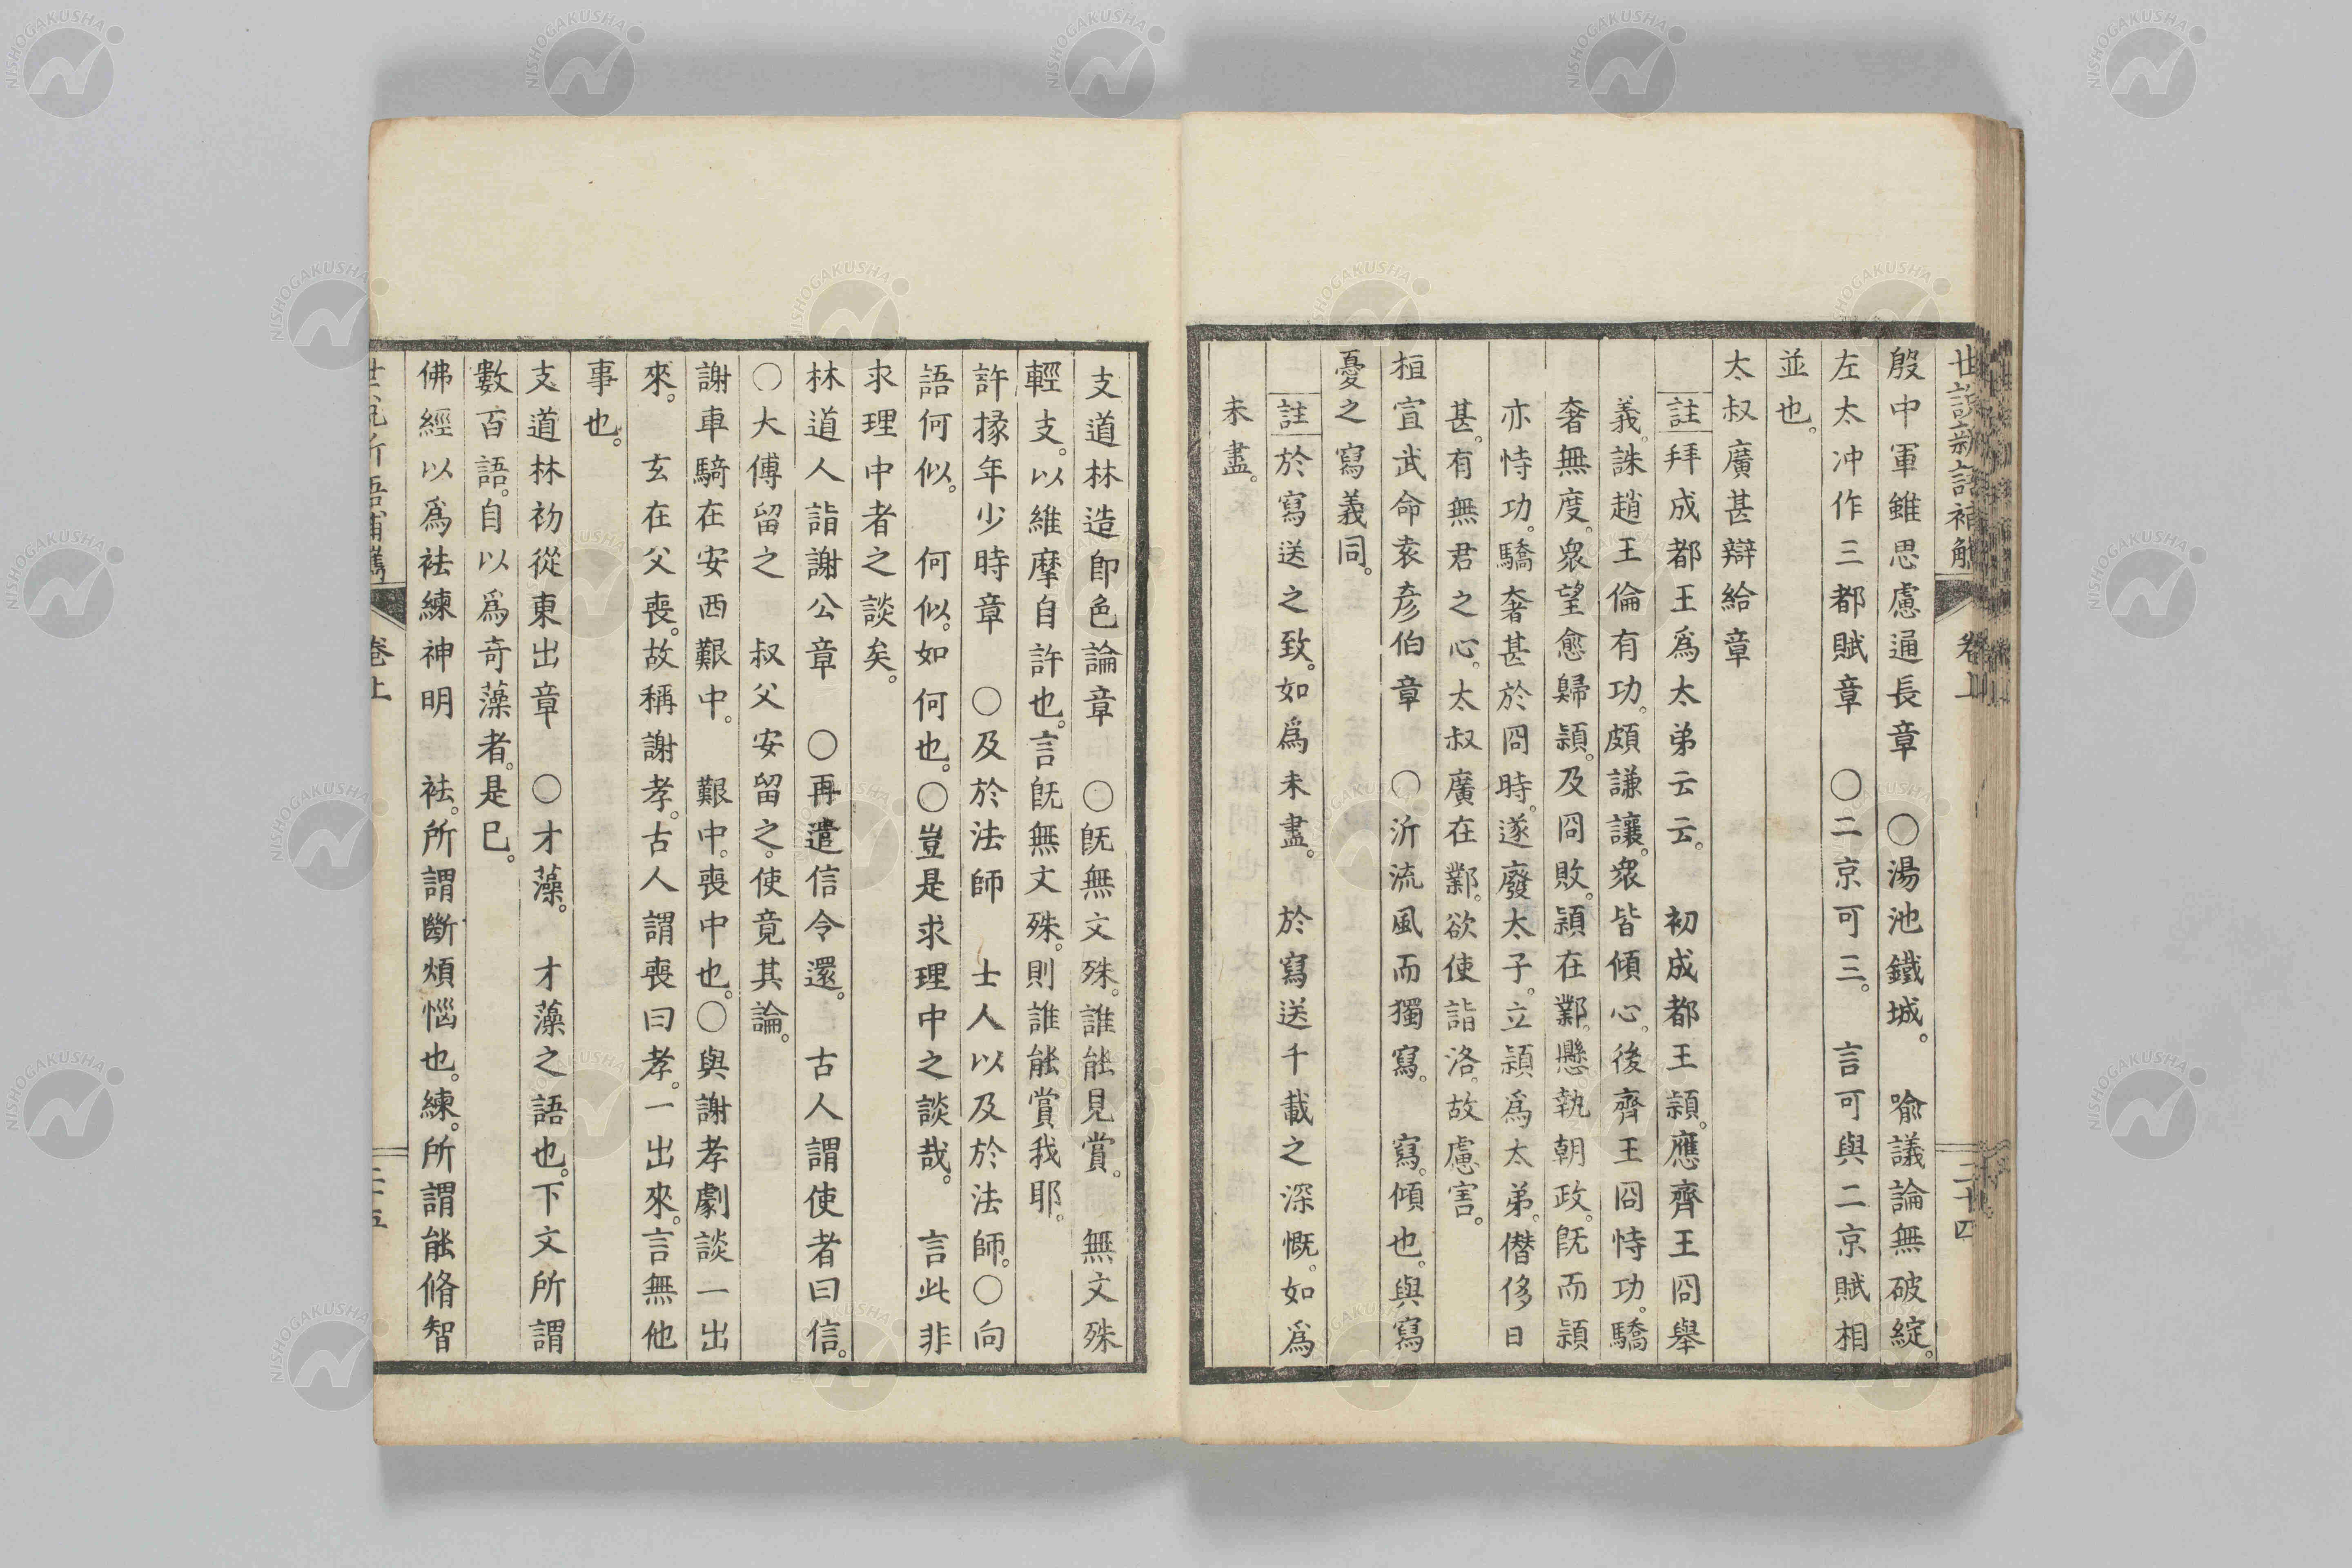 世說新語補觿 卷上 二十四
殷中軍雖思慮通長章　〇湯池鐵城。　喩議論無破綻。
左太冲作三都賦章　〇二京可三。　言可與二京賦相
並也。
太叔廣甚辯給章
註拜成都王爲太弟云云。　初成都王穎。應齊王冏舉
義。誅趙王倫有功。頗謙讓。衆皆傾心。後齊王冏恃功。驕
奢無度。衆望愈歸穎。及冏敗。穎在鄴。懸執朝政。旣而穎
亦恃功。驕奢甚於冏時。遂廢太子。立穎爲太弟。僭侈日
甚。有無君之心。太叔廣在鄴。欲使詣洛。故慮害。
桓宣武命袁彦伯章　〇泝流風而獨寫。　寫。傾也。與寫
憂之寫義同。
註於寫送之致。如爲未盡。　於寫送千載之深慨。如爲
未盡。
支道林造卽色論章　〇旣無文殊。誰能見賞。　無文殊
輕支。以維摩自許也。言旣無文殊。則誰能賞我耶。
許掾年少時章　〇及於法師　士人以及於法師。〇向
語何似。　何似。如何也。〇豈是求理中之談哉。　言此非
求理中者之談矣。
林道人詣謝公章　〇再遣信令還。　古人謂使者曰信。
〇大傅留之　叔父安留之。使竟其論。
謝車騎在安西艱中。　艱中。喪中也。〇與謝孝劇談一出
來。　玄在父喪。故稱謝孝。古人謂喪曰孝。一出來。言無他
事也。
支道林初從東出章　〇才藻。　才藻之語也。下文所謂
數百語。自以爲奇藻者。是已。
佛經以爲祛練神明　祛。所謂斷煩惱也。練。所謂能脩智
世說新語補觿 卷上 二十五